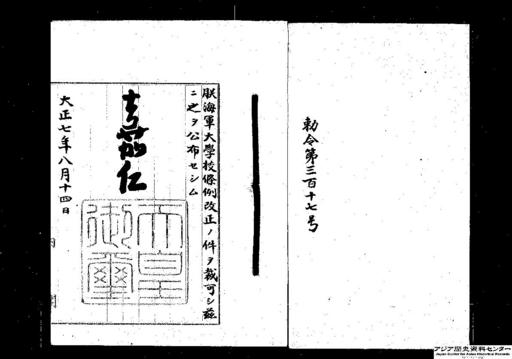 勅令第三百十七号
朕海軍大學校條例改正ノ件ヲ裁可シ茲
ニ之ヲ公布セシム
嘉仁
天皇御璽
大正七年八月十四日
内閣
アジア歴史資料センター
Japan Center for Asian Historical Records